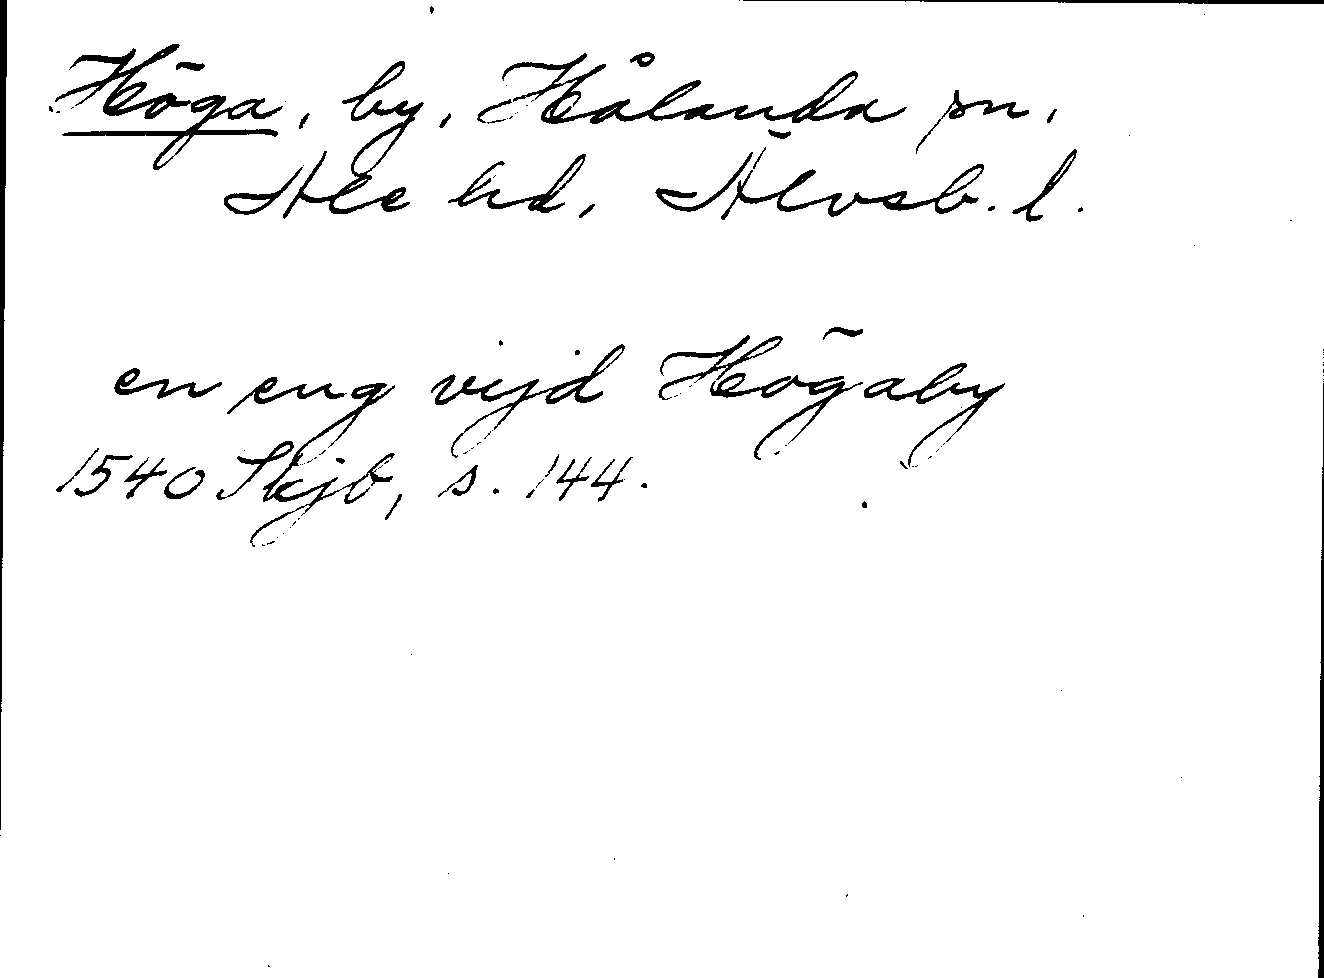 Höga, by, Hålanda sn,
Ale hd, Älvsb. l.
en eng vijd Högaby
1540 Skjb, s. 144.